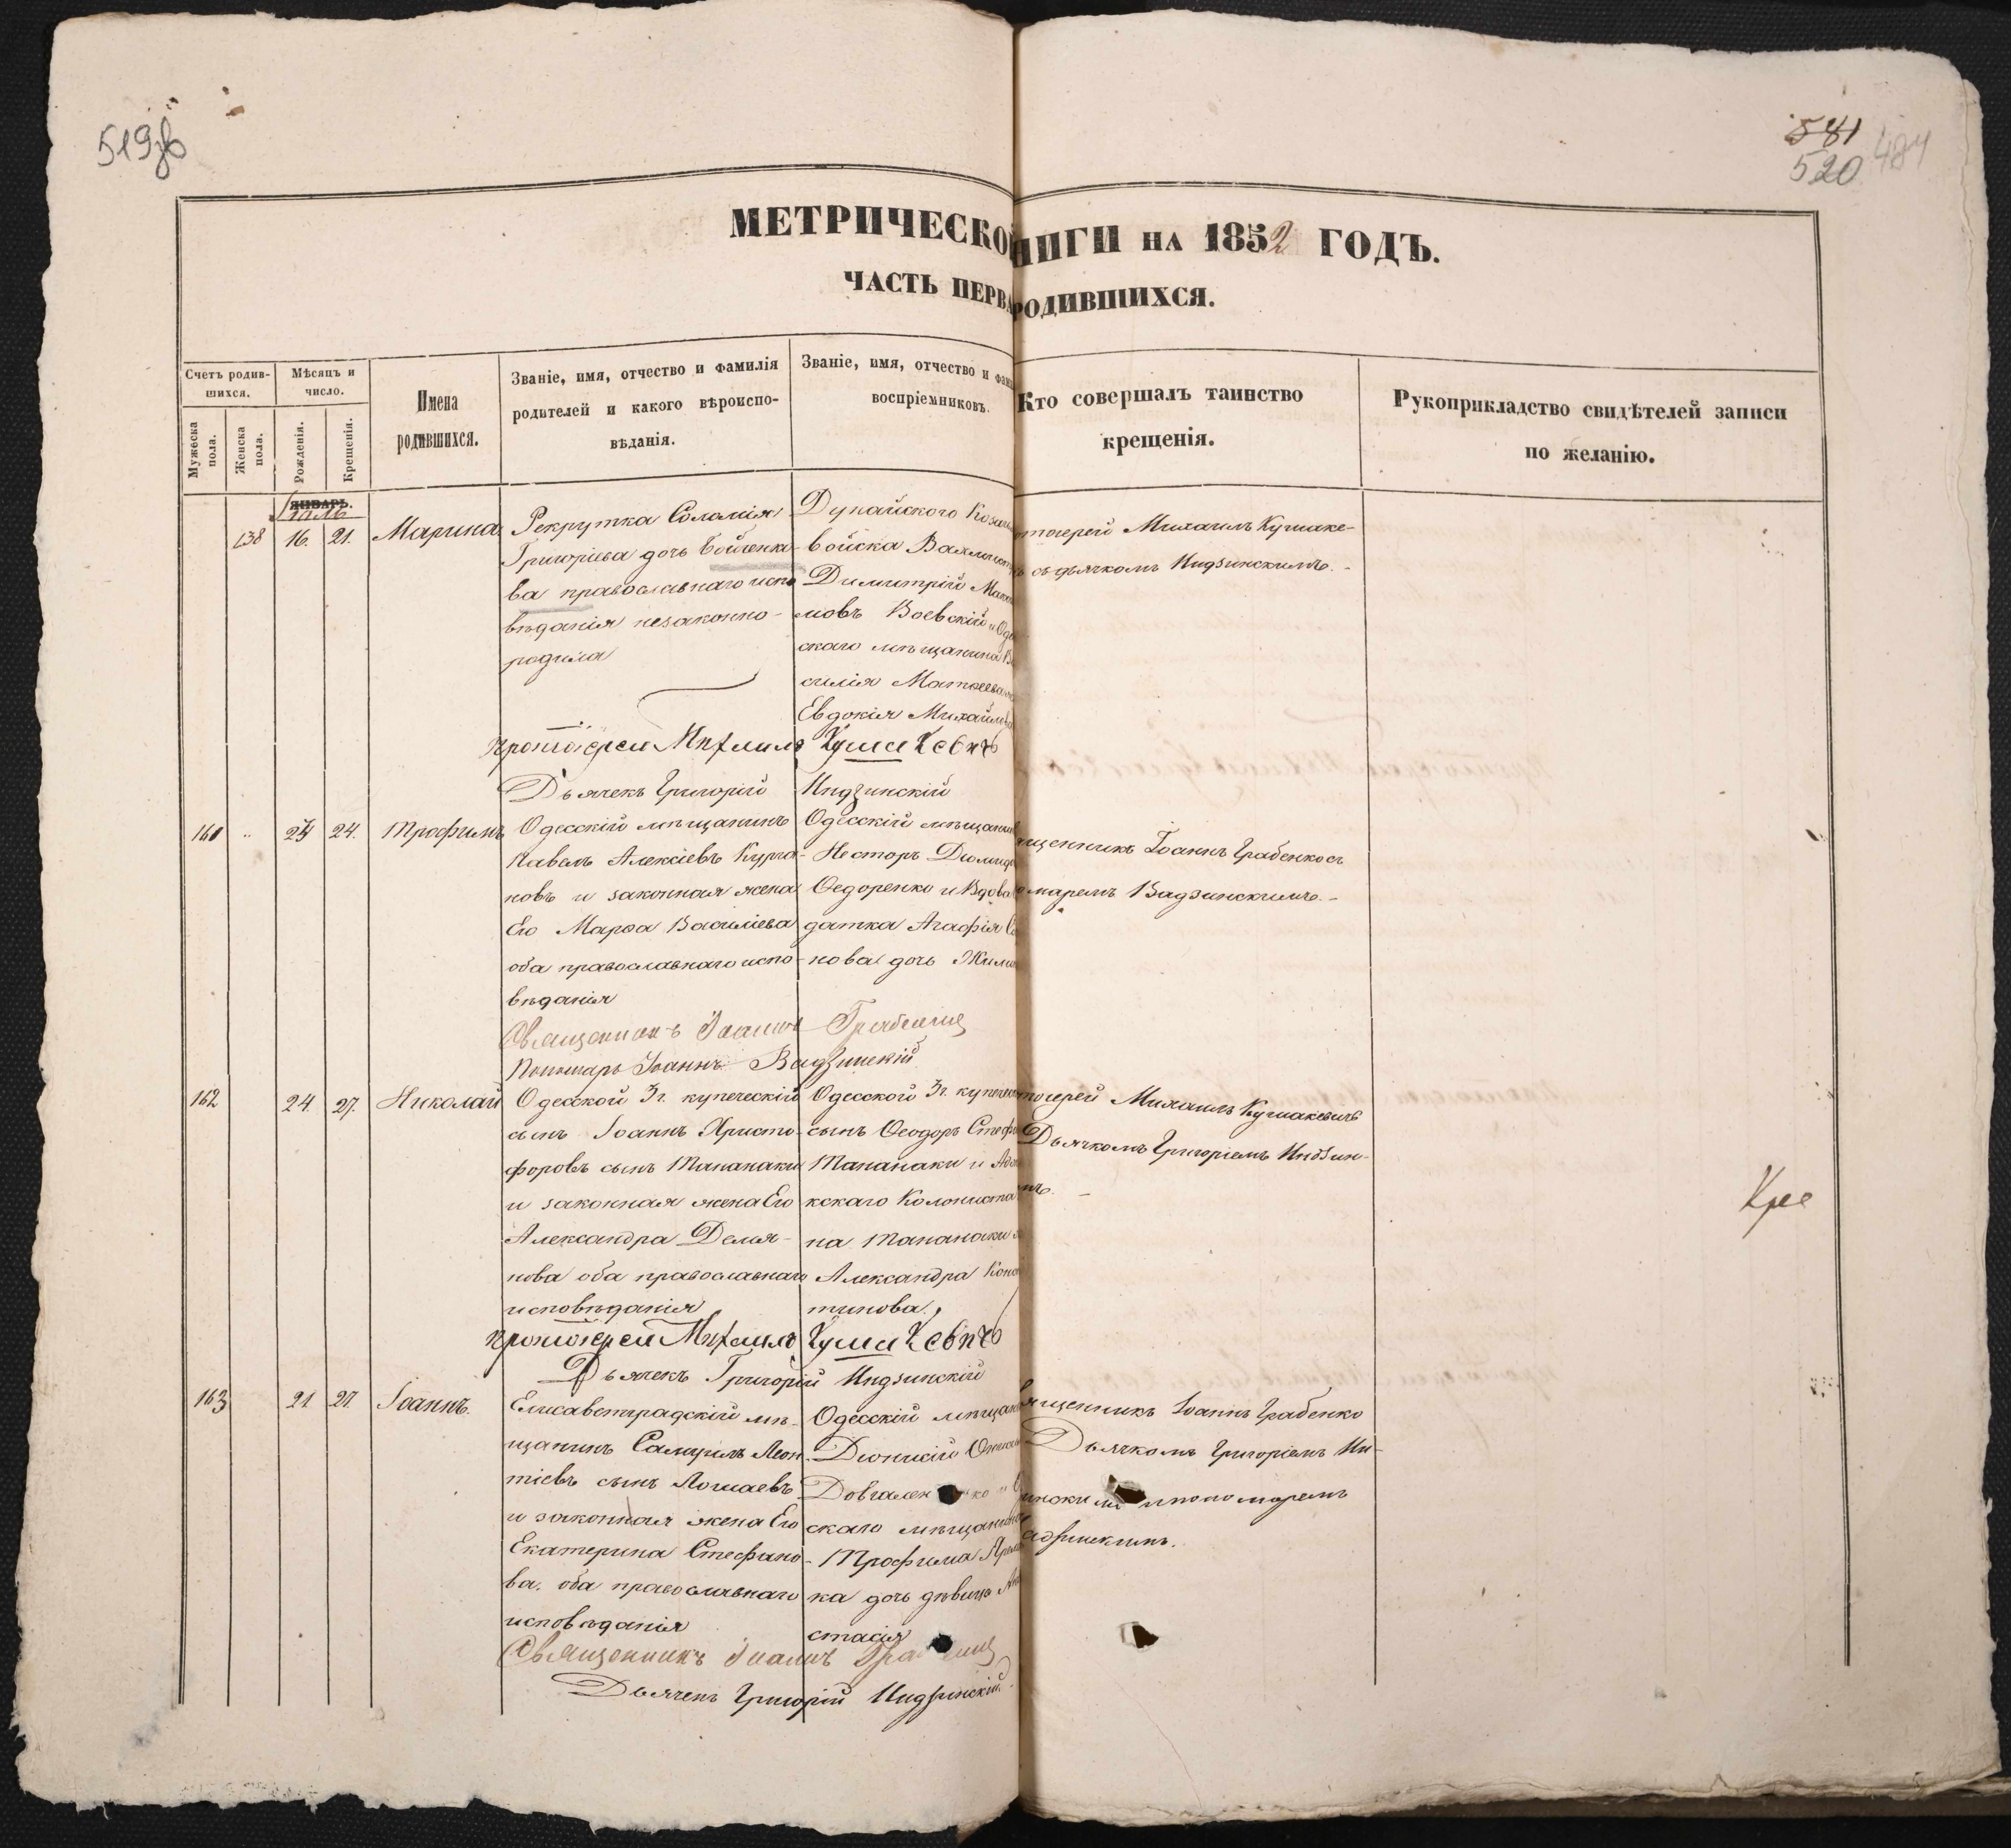 519об
581
520 484
МЕТРИЧЕСКО НИГИ НА 1852 ГОДЪ.
ЧАСТЬ ПЕРВА РОДИВШИХСЯ.
Счетъ родив-
шихся.
Мужеска
пола.
Женска
пола.
Мѣсяцъ и
число.
Рожденія.
Крещенія.
Имена
родившихся.
Званіе, имя, отчество и фамилія
родителей и какого вѣроиспо-
вѣданія.
Званіе, имя, отчество и фам
воспріемниковъ.
Кто совершалъ таинство
крещенія.
Рукоприкладство свидѣтелей записи
по желанію.
ЯНВАРЬ.
138 16. 21. Марина
Рекрутка Соломія
Григоріева дочь Бойченко-
ва православнаго испо
вѣданія незаконно-
родила
Дунайского Коза
войска
Димитрій
мовъ Воевскій и Оде
скаго мѣщанина Ва
силія Матѳеева
Евдокія Михайло
тоіерей Михаилъ Кушаке-
съ дьячкомъ Индзинскимъ.-
Протоіерей Михаилъ Кушакевичъ
Дьячекъ Григорій Индзинскій
161 " 24 24. Трофимъ
Одесскій мѣщанинъ
Павелъ Алексіевъ Курга-
новъ и законная жена
Его Марѳа Васильева
оба православнаго испо-
вѣданія
Одесскій мѣщанин
Несторъ
Ѳедоренко и Вдова
датка Агафія
нова дочь
щенникъ Іоаннъ Грабенко съ
омаремъ Вадзинскимъ.-
Священникъ Іоаннъ Грабенко
Пономарь Іоаннъ Вадзинскій
162 24. 27. Николай
Одесской 3г. купеческій
сынъ Іоаннъ Христо-
форовъ сынъ Мананаки
и законная жена Его
Александра Демья-
нова оба православнаго
исповѣданія
Одесской 3г. купечес
сынъ Ѳеодоръ Стеф
Мананаки и
кскаго Колониста
на Мананаки
Александра Конс
тинова.
тоіерей Михаилъ Кушакевичъ
Дьячкомъ Григоріемъ Индзин-
мъ. -
Протоіерей Михаилъ Кушакевичъ
Дьячекъ Григорій Индзинскій
163 21 27. Іоаннъ.
Елисаветградскій мѣ-
щанинъ Самуилъ Леон-
тіевъ сынъ Лошаевъ
и законная жена Его
Екатерина Стефано-
ва. оба православнаго
исповѣданія
Одесскій мѣщан
Діонисій
Довгален ко и О
скаго мѣщанина
Трофима
ка дочь дѣвица Ана
стасія
ященникъ Іоаннъ Грабенко
Дьячкомъ Григоріемъ Ин-
инскимъ и пономаремъ
адзинскимъ.
Священникъ Іоаннъ Гра енко
Дьячекъ Григорій Индзинскій.